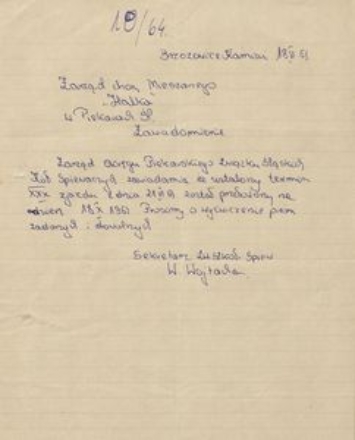 18/64
Brzozowice Kamień 18 V 61
Zarząd chóru Mieszanego
"Halka"
w Piekarach Śl.
Zawiadomienie
Zarząd Okręgu Piekarskiego Związku Śląskich
Kół Śpiewaczych zawiadamia że ustalony termin
XXX zjazdu z dnia został przełożony na
dzień 18 X 1961 Prosimy o wyćwiczenie pieśni
zadanych i dowolnych
Sekretarz Zw. Śl. Kół Śpiew
W. Wojtacha